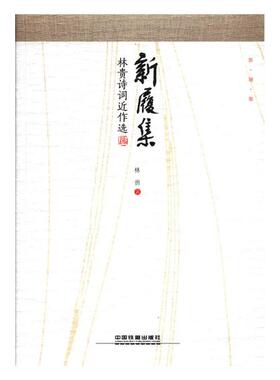 新·履·集
新履集
林贵诗词近作选
林贵
中国铁道出版社